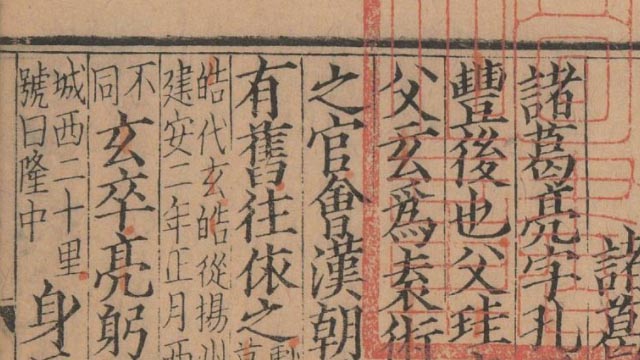 諸葛
諸葛亮字孔
豐後也父珪
父玄爲袁術
之官會漢朝
有舊往依之
皓代玄皓從揚州
建安二年正月西
不
同
玄卒亮躬
城西二十里
號曰隆中
身